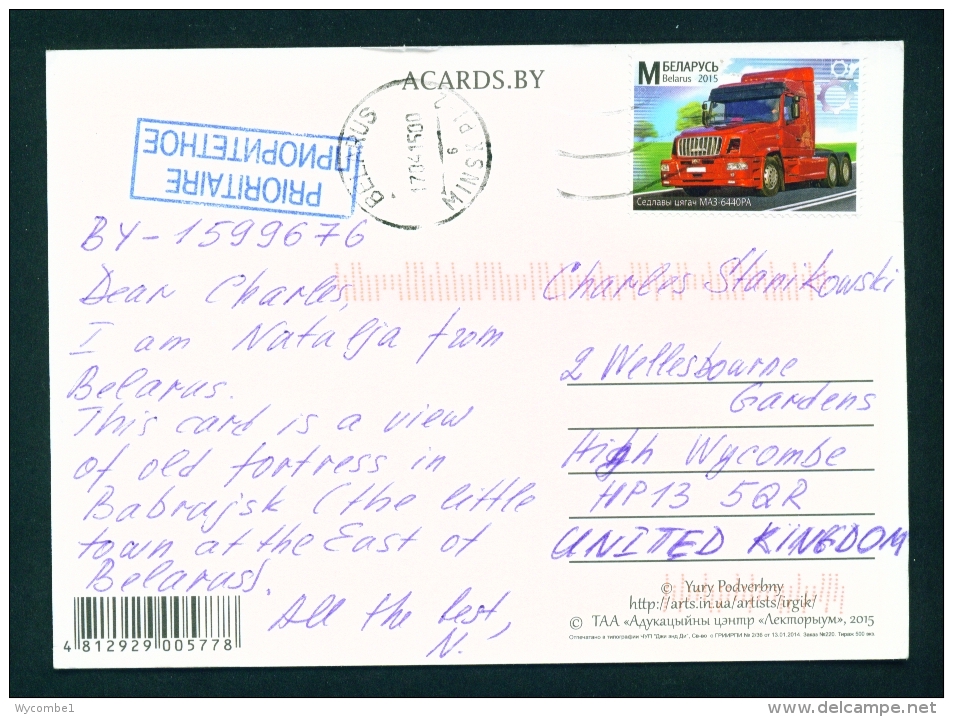 ACARDS.BY
М БЕЛАРУСЬ
Belarus 2015
Седлавы цягач МАЗ-6440РА
BELARUS
MINSK
PRIORITAIRE
ПРИОРИТЕТНОЕ
BY-1599676
Dear Charles,
I am Natalja from
Belarus.
This card is a view
of old fortress in
Babrujsk (the little
town at the East of
Belarus).
All the best,
N.
Charles Stanikowski
2 Wellesbourne
Gardens
High Wycombe
HP13 5QR
UNITED KINGDOM
© Yury Podverbny
http://arts.in.ua/artists/irgik/
© ТАА «Адукацыйны цэнтр «Лекторыум», 2015
Отпечатано в типографии ЧУП "Джи энд Ди", Св-во о ГРИИРПИ № 2/36 от 13.01.2014. Заказ №220. Тираж 500 экз.
4 812929 005778
Wycombe1
www.delcampe.net